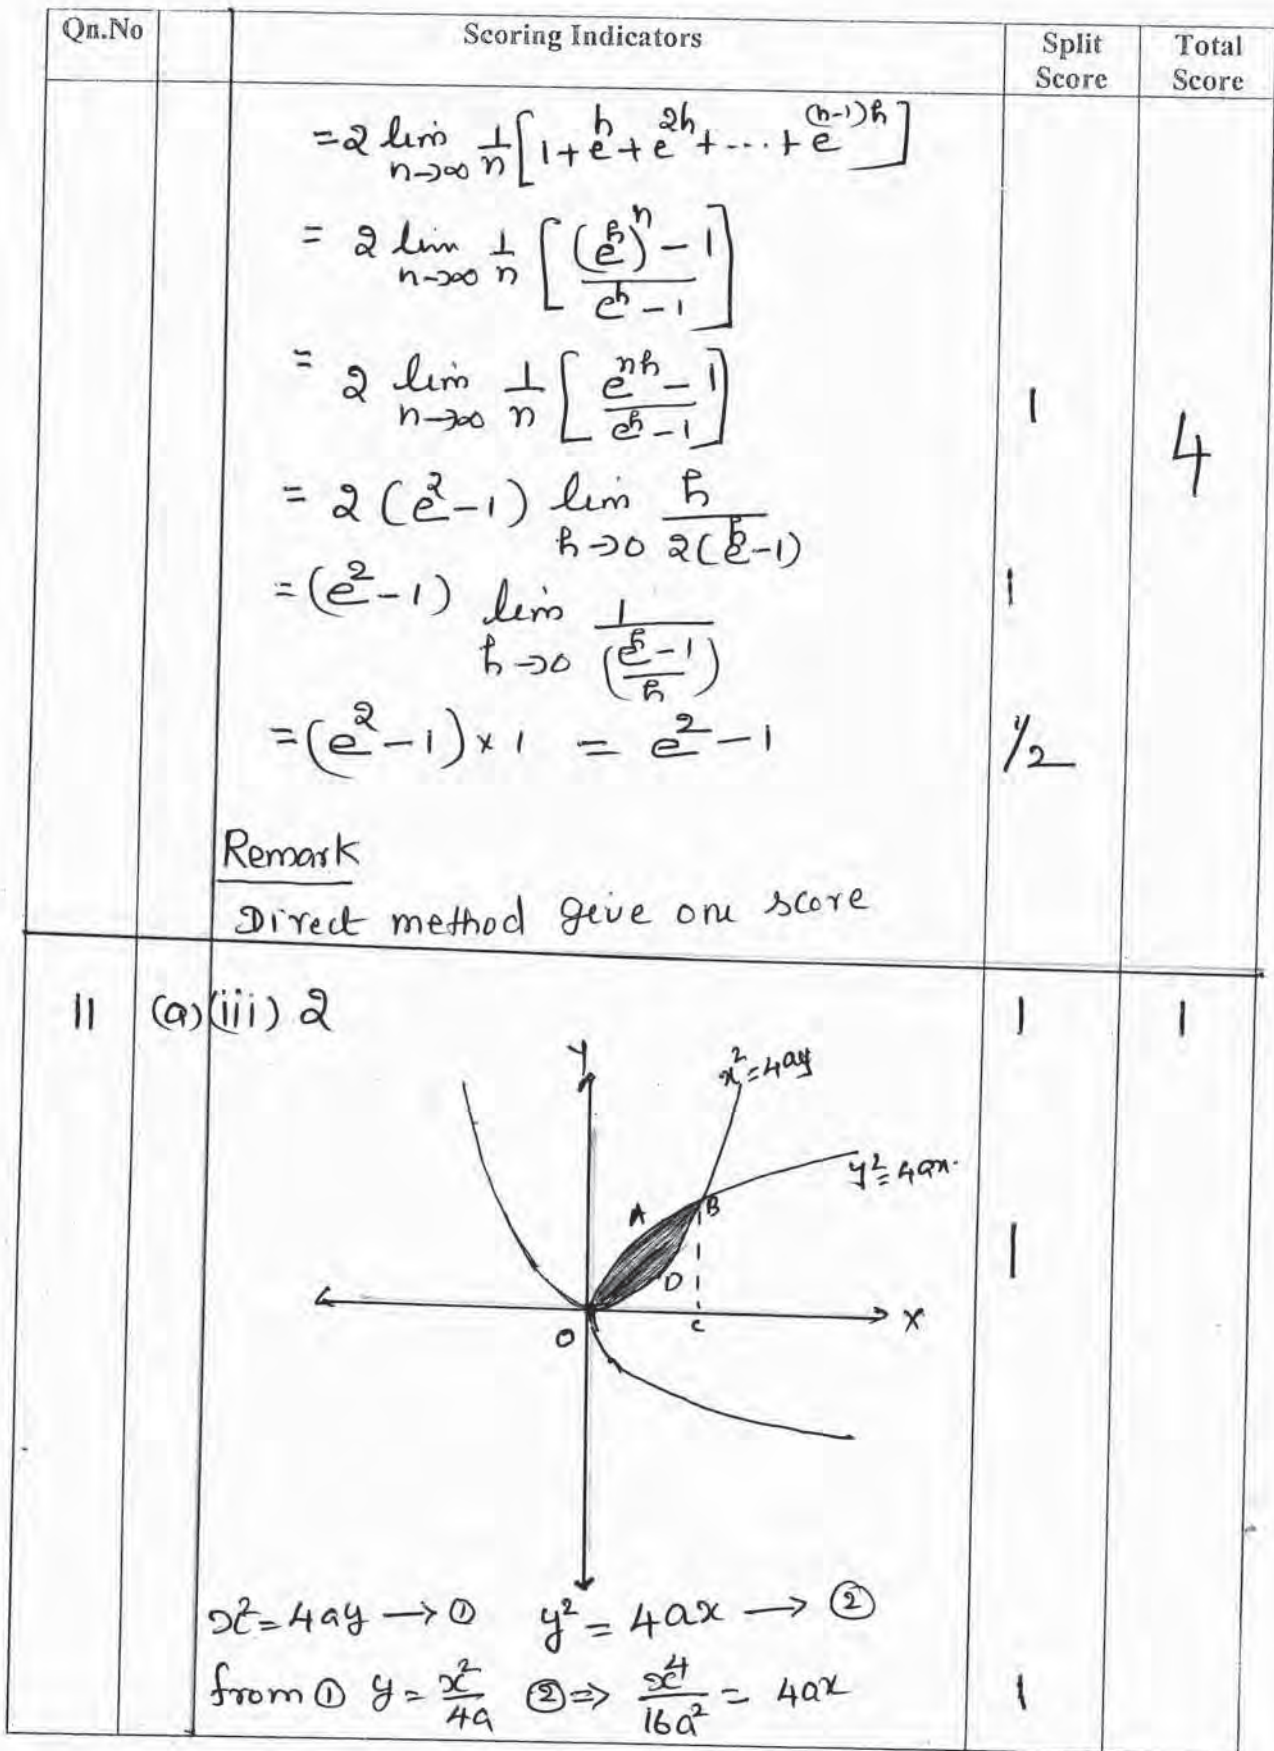 Qn.No Scoring Indicators Split Score Total Score
= 2 lim n→∞ 1/n [1 + e^h + e^2h + .... + e^(n-1)h]
= 2 lim n→∞ 1/n [((e^h)^n - 1)/(e^h - 1)]
= 2 lim n→∞ 1/n [(e^nh - 1)/(e^h - 1)] 1 4
= 2 (e^2 - 1) lim h→0 h/(2(e^h - 1))
= (e^2 - 1) lim h→0 1/((e^h - 1)/h) 1
= (e^2 - 1) × 1 = e^2 - 1 1/2
Remark
Direct method geive one score
11 (a) (iii) 2 1 1
Y x^2 = 4ay
y^2 = 4ax.
A B 1
D
O C X
x^2 = 4ay → ① y^2 = 4ax → ②
from ① y = x^2/4a ② ⇒ x^4/16a^2 = 4ax 1